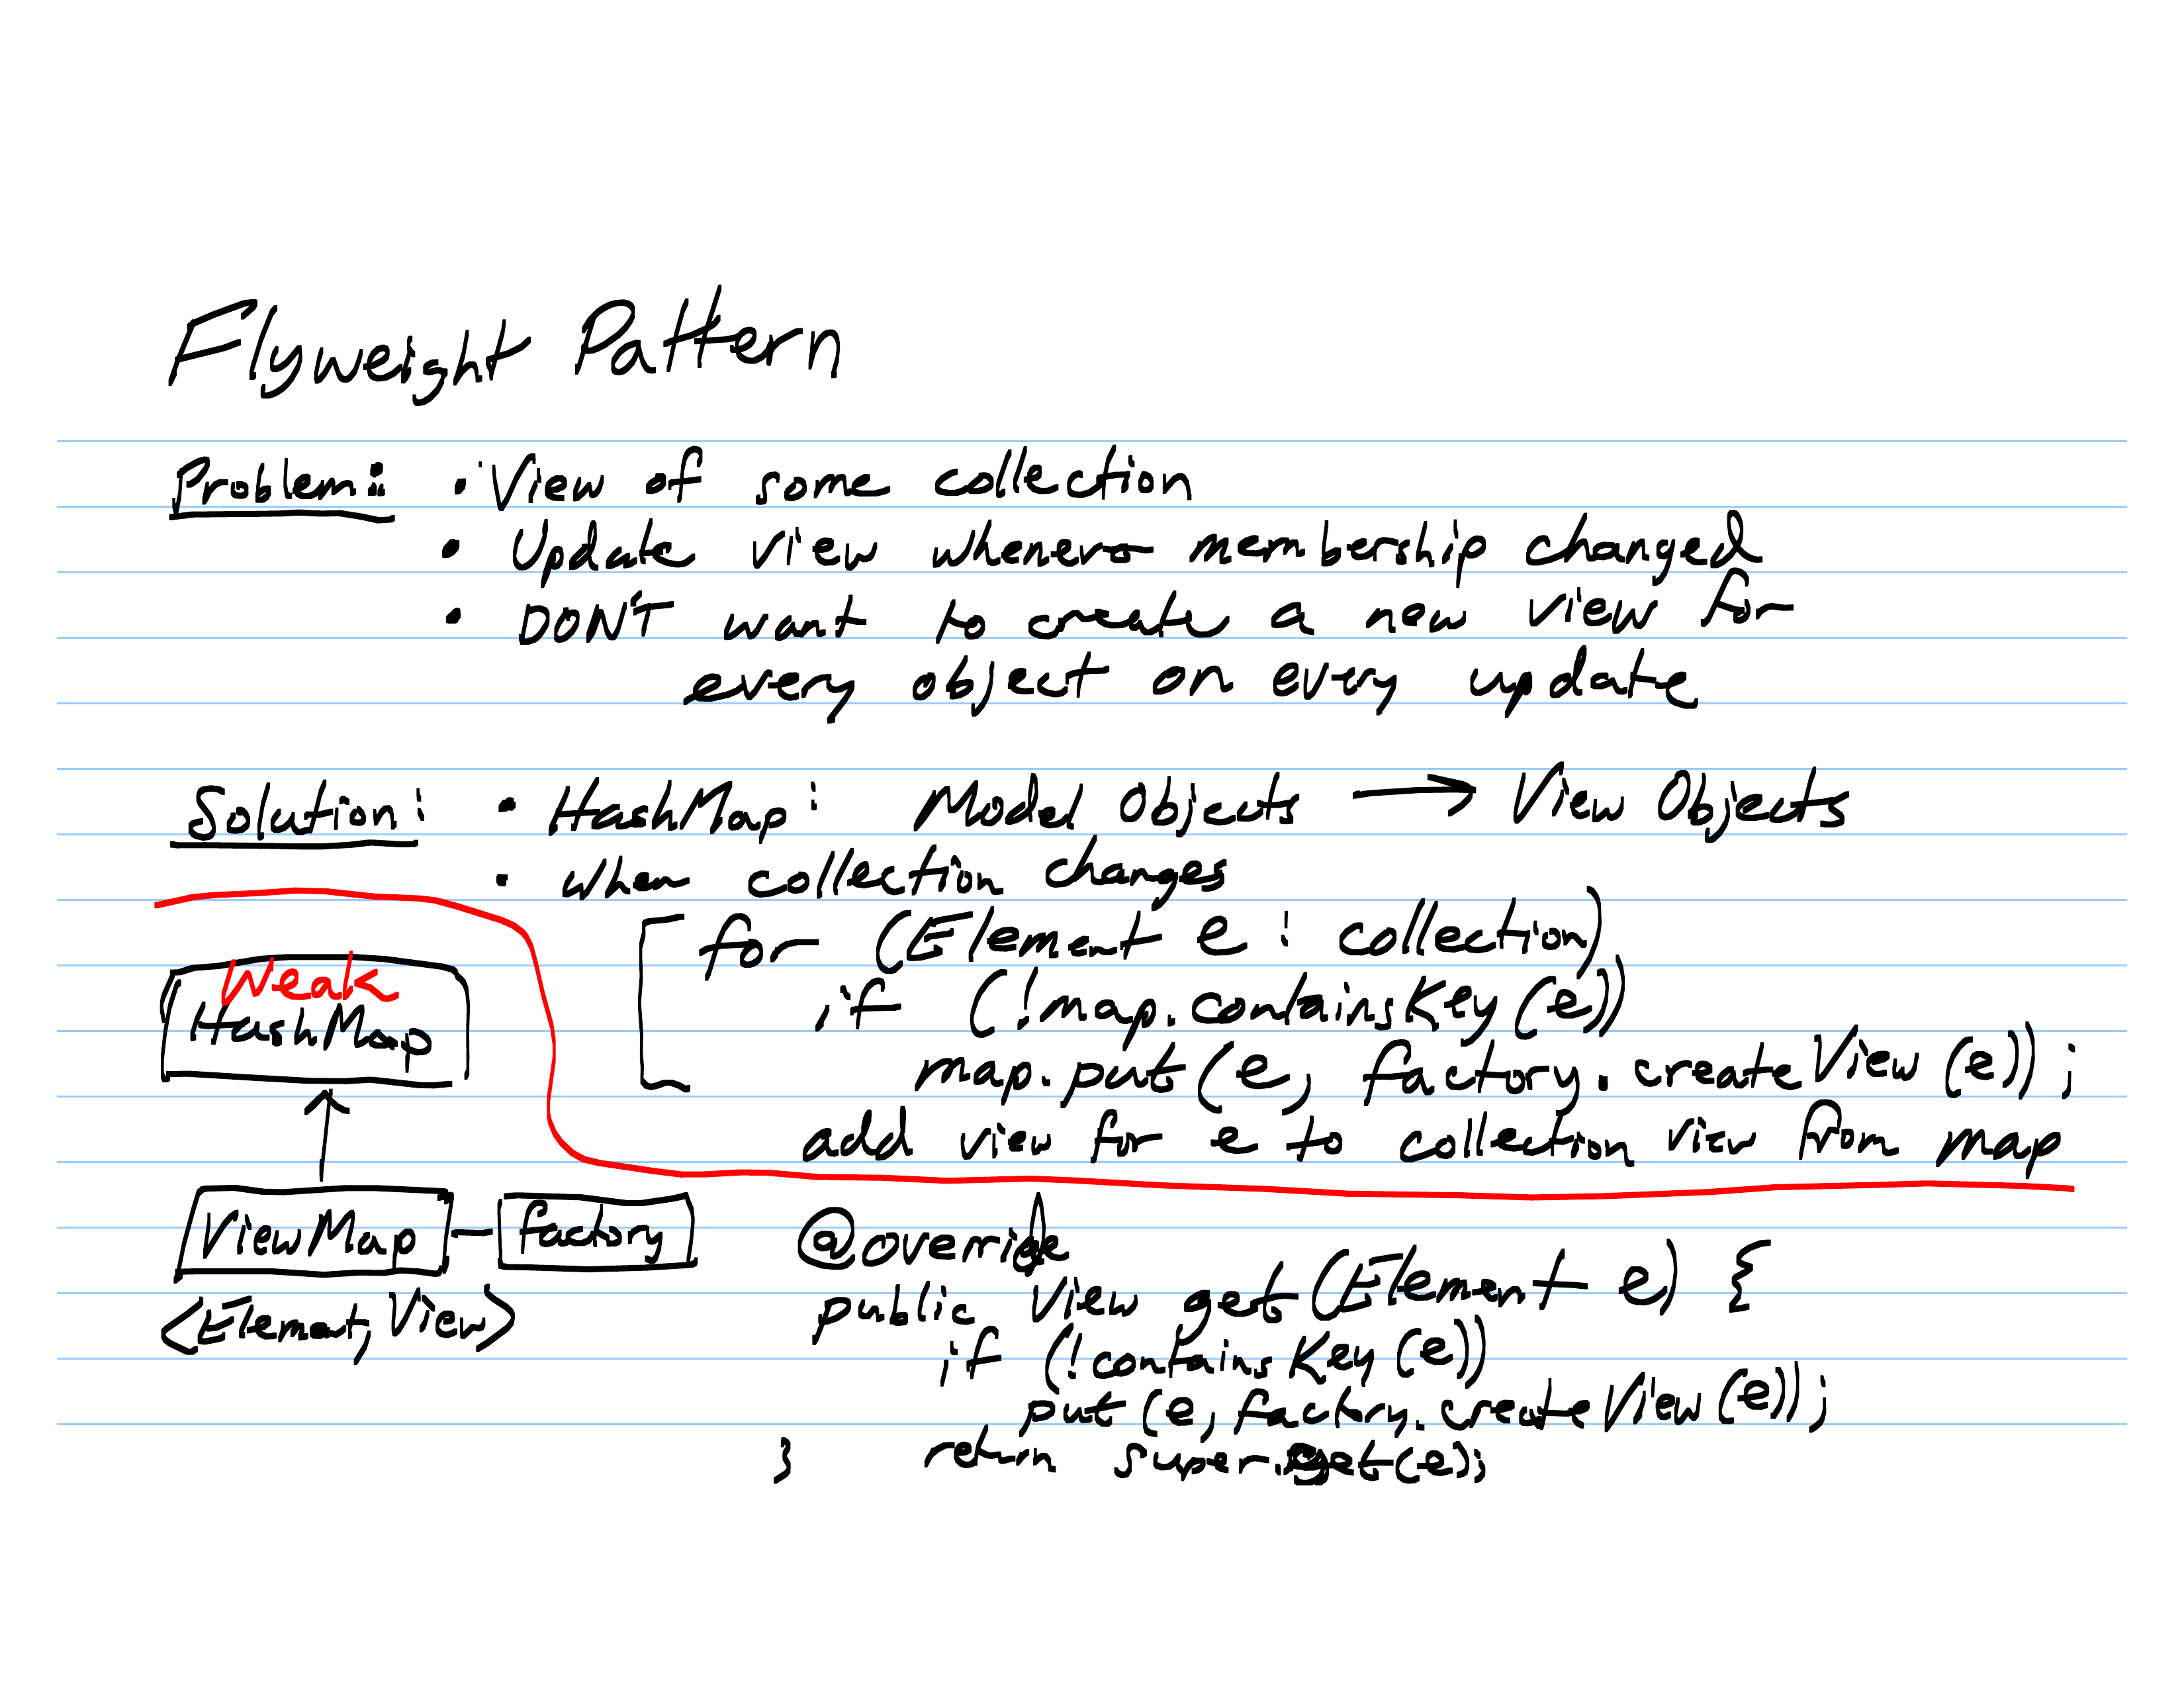 Flyweight Pattern
Problem: • View of some collection
• Update view whenever membership changed
• DON'T want to create a new view for
every object on every update
Solution: • HashMap: Model Objects → View Objects
• when collection changes
for (Element e : collection)
if (!map.containsKey(e))
map.put(e, factory.createView(e));
add view for e to collection view from map
Weak
HashMap
ViewMap - factory
<Element, View>
@override
public View get(Element e) {
if (!containsKey(e))
put(e, factory.createView(e));
} return super.get(e);